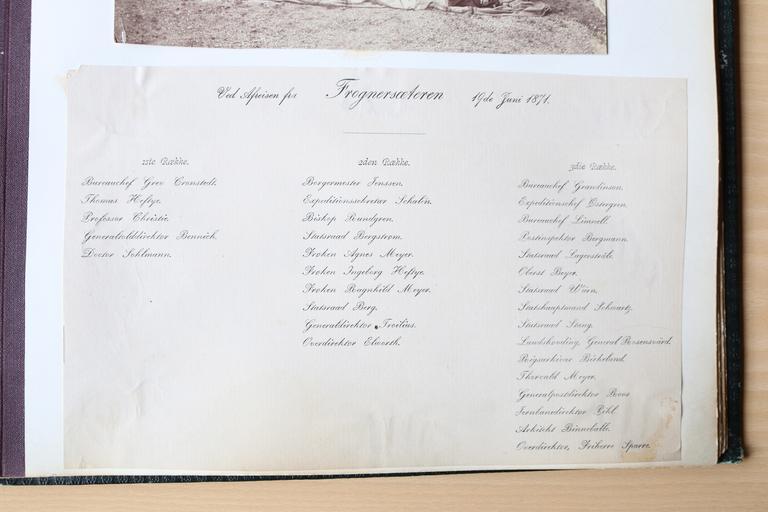 Ved Afreisen fra Frognersæteren 19de Juni 1871.
1ste Række.
Bureauchef Grev Cronstedt.
Thomas Heftye.
Professor Christie.
Generaltolddirektor Bennich.
Doctor Sohlmann.
2den Række.
Borgermester Jenssen.
Expeditionssekretær Schulin.
Bishop Sundgren.
Statsraad Bergstrøm.
Frøken Agnes Meyer.
Frøken Ingeborg Heftye.
Frøken Ragnhild Meyer.
Statsraad Berg.
Generaldirektør Troilius.
Overdirektør Elworth.
3die Række.
Bureauchef Grandinson.
Expeditionschef Østergren.
Bureauchef Linnell.
Postinspektør Bergmann.
Statsraad Lagerstråle.
Oberst Beyer.
Statsraad Wærn.
Statshauptmand Schwartz.
Statsraad Stang.
Landshövding, General Rosensvärd.
Rigsarkivar Birkeland.
Thorvald Meyer.
Generalpostdirektør Roos
Jernbanedirektør Pihl.
Arkitekt Binneballe.
Overdirektør, Friherre Sparre.